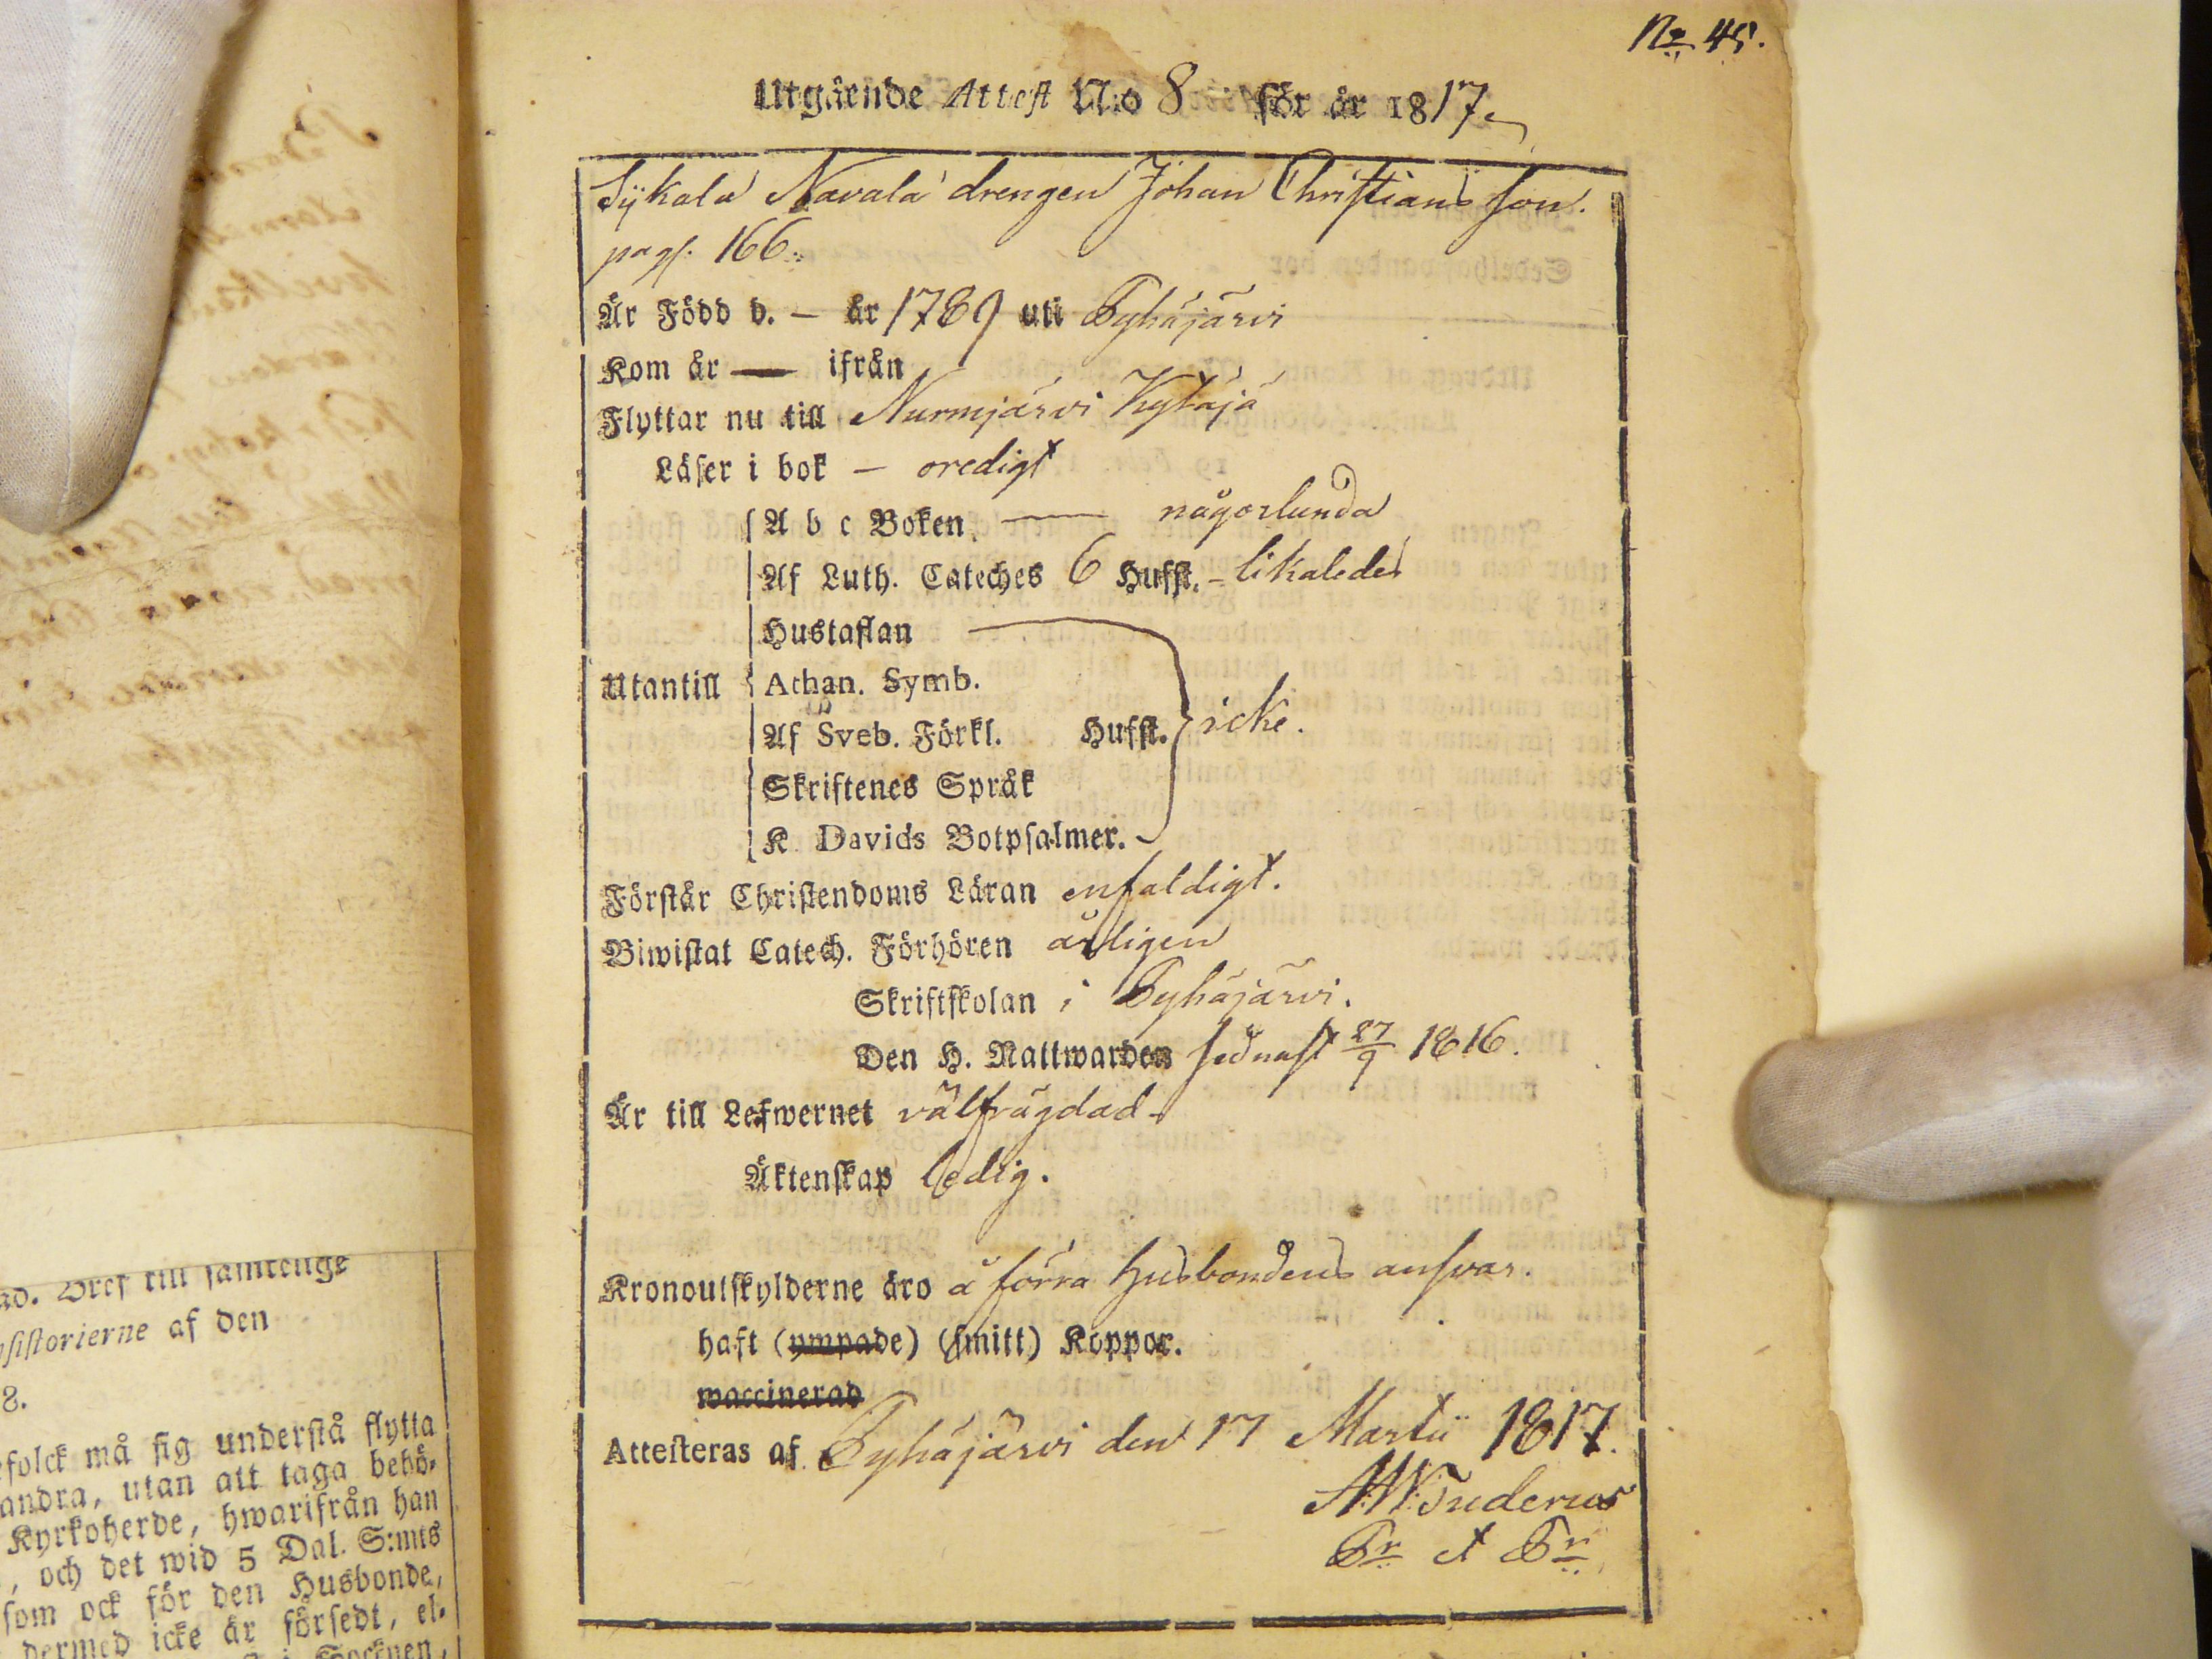 No 45.
Utgående Attest N:o 8 för år 1817
Sÿkälä Navala drengen Johan Christians son.
pag. 166.
Är Född d. — år 1789 uti Pyhäjärvi
Kom år — ifrån
Flyttar nu till Nurmijärvi Kytäjä
Läser i bok — oredigt
A b c Boken — någorlunda
Af Luth. Cateches 6 Hufst. - likaledes
Hustaflan
Utantill Athan. Symb.
Af Sveb. Förkl. Hufst. icke.
Skriftenes Språk
K Davids Botpsalmer.
Förstår Christendoms Läran enfaldigt.
Biwistat Catech. Förhören årligen
Skriftskolan i Pyhäjärvi.
Den H. Nattwarden sednast 27/9 1816.
Är till Lefwernet välfrägdad
Äktenskap ledig.
Kronoutskylderne äro å förra Husbondens ansvar.
haft (ympade) (smitt) Koppor.
waccinerad
Attesteras af Pyhäjärvi den 17 Martii 1817.
Tuderus
Pr et Pr
samtelige
sistorierne af den
8.
folck må sig understå flytta
andra, utan att taga behö-
Kyrkoherde, hwarifrån han
, och det wid 5 Dal. S:mts
som ock för den Husbonde,
dermed icke är försedt, el-